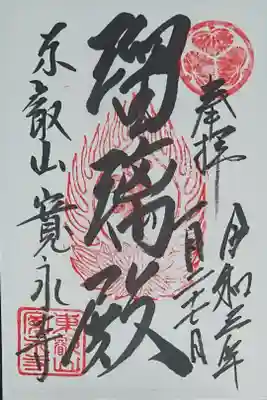 奉拝
令和三年
一月二十七日
瑠璃殿
东叡山寛永寺
東叡山
寛永寺